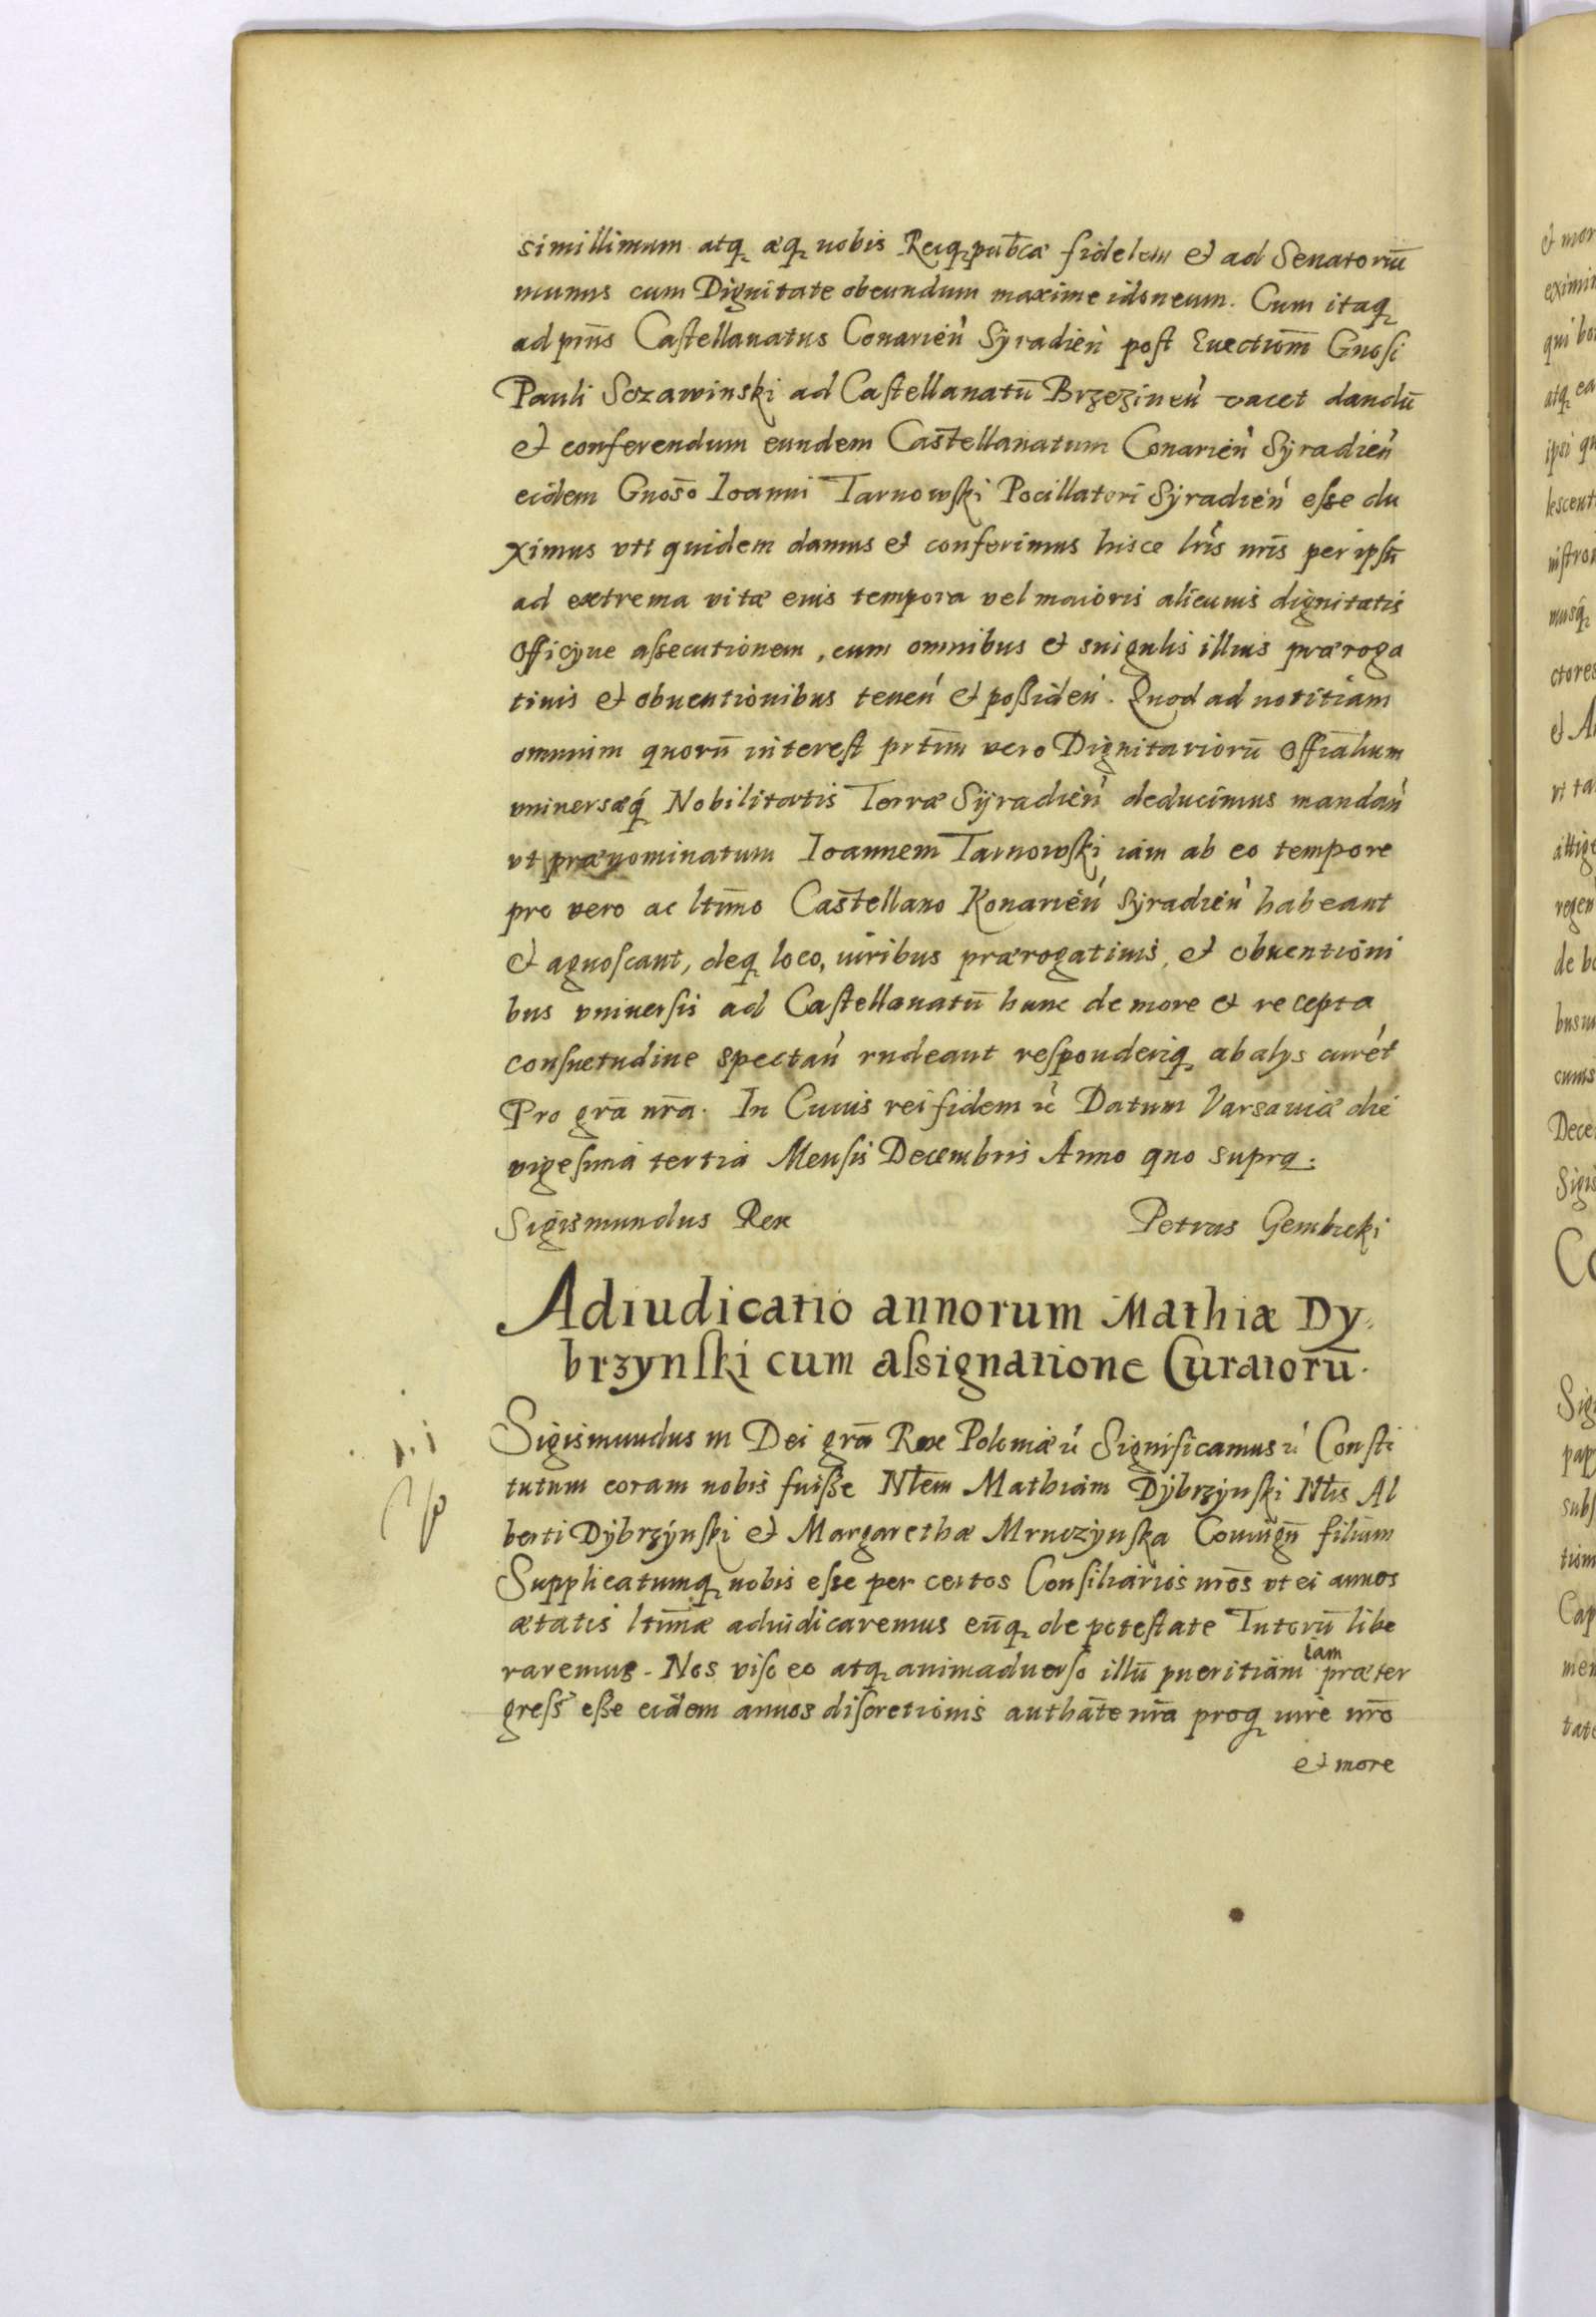 simillimum atq₃ æq₃ nobis Reiq₃ pub̄cæ fidelem et ad Senatoriū
munus cum Dignitate obeundum maxime idoneum. Cum itaq₃
ad pn̄s Castellanatus Conarień Syradień post Euectiom̄ Gnosi
Pauli Sczawinski ad Castellanatū Brzezineń vacet dandū
et conferendum eundem Castellanatum Conarień Syradień
eidem Gnoso Ioanni Tarnowski Pocillatori Syradień esse du
ximus vti quidem damus et conferimus hisce lr̄is nr̄is per ipsū
ad extrema vitæ eius tempora vel maioris alicuius dignitatis
Officijue assecutionem, cum omnibus et singulis illius præroga
tiuis et obuentionibus teneń et possideń. Quod ad notitiam
omnium quorū interest prtim̄ vero Dignitariorū Offīalium
vniuersæq́ Nobilitatis Terræ Syradień deducimus mandań
vt prænominatum Ioannem Tarnowski iam ab eo tempore
pro vero ac ltim̄o Castellano Konarień Syradień habeant
et agnoscant, deq₃ loco, iuribus prærogatiuis, et obuentioni
bus vniuersis ad Castellanatū hunc de more et recepta
consuetudine spectań rndeant responderiq₃ ab alijs curét
Pro grā nr̄a. In Cuius rei fidem ꝛc̀ Datum Varsauiæ die
vigesima tertia Mensis Decembris Anno quo supra.
Sigismundus Rex Petrus Gembicki
Adiudicatio annorum Mathiæ Dy
brzynski cum assignatione Curatorū.
Sigismundus III Dei grā Rex Poloniæ ꝛc̀ Significamus ꝛc̀ Consti
tutum coram nobis fuisse Nłem Mathiam Dybrzynski Nłis Al
berti Dybrzynski et Margarethæ Mruczynska Coniugū filium
Supplicatumq₃ nobis esse per certos Consiliarios nr̄os vt ei annos
ætatis ltim̄æ adiudicaremus eūq₃ de potestate Tutorū libe
raremus. Nos viso eo atq₃ animaduerso illū pueritiam iam præter
gress̄ esse eidem annos discretionis authāte nr̄a proq₃ iure nr̄o
et more